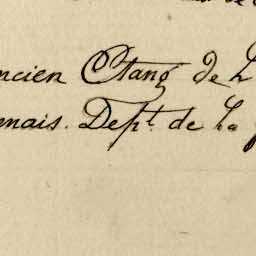 ncien Etang de L
enais. Dept. de La